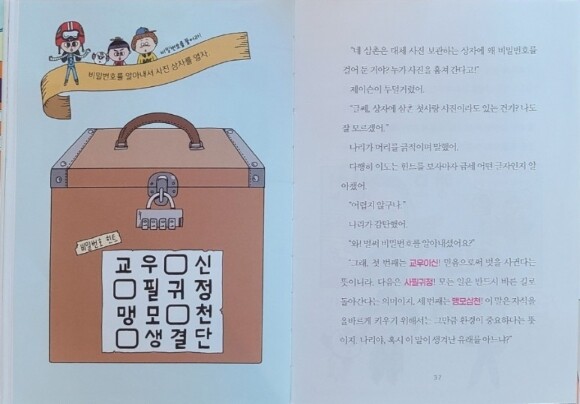 비밀번호를 찾아라!
비밀번호를 알아내서 사진 상자를 열자.
비밀번호 힌트
교우신
필귀정
맹모천
생결단
"네 삼촌은 대체 사진 보관하는 상자에 왜 비밀번호를
걸어 둔 거야? 누가 사진을 훔쳐 간다고!"
제이슨이 투덜거렸어.
"글쎄, 상자에 삼촌 첫사랑 사진이라도 있는 건가? 나도
잘 모르겠어."
나리가 머리를 긁적이며 말했어.
다행히 이도는 힌트를 보자마자 금세 어떤 글자인지 알
아챘어.
"어렵지 않구나."
나리가 감탄했어.
"와! 벌써 비밀번호를 알아내셨어요?"
"그래, 첫 번째는 교우이신! 믿음으로써 벗을 사귄다는
뜻이니라. 다음은 사필귀정! 모든 일은 반드시 바른 길로
돌아간다는 의미이지. 세 번째는 맹모삼천! 이 말은 자식을
올바르게 키우기 위해서는 그만큼 환경이 중요하다는 뜻
이지. 나리야, 혹시 이 말이 생겨난 유래를 아느냐?"
37